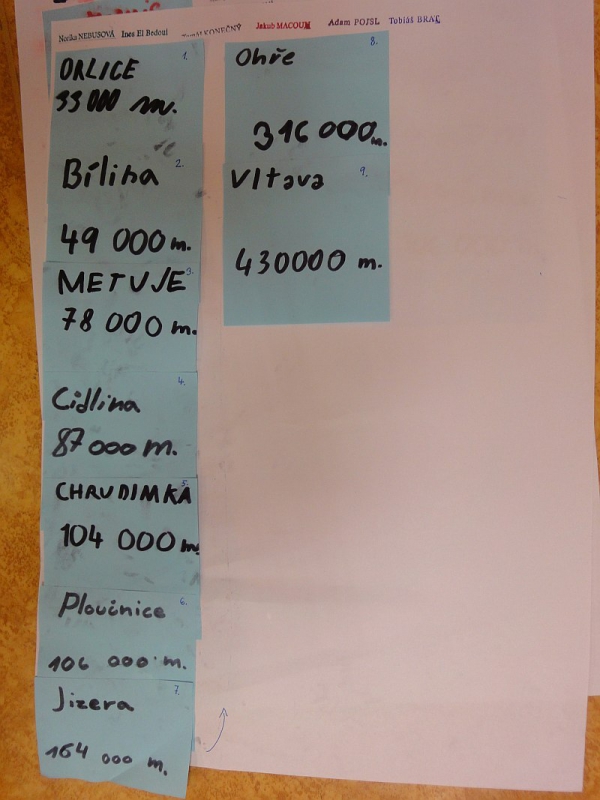 Norika NEBUSOVÁ Ines El Bedoui KONEČNÝ Jakub MACOUN Adam POJSL Tobiáš
1.
ORLICE
33 000 m.
2.
Bílina
49 000 m.
METUJE 3.
78 000 m.
4.
Cidlina
87 000 m.
5.
CHRUDIMKA
104 000 m.
6.
Ploučnice
106 000 m.
7.
Jizera
164 000 m.
8.
Ohře
316 000 m.
9.
Vltava
430000 m.